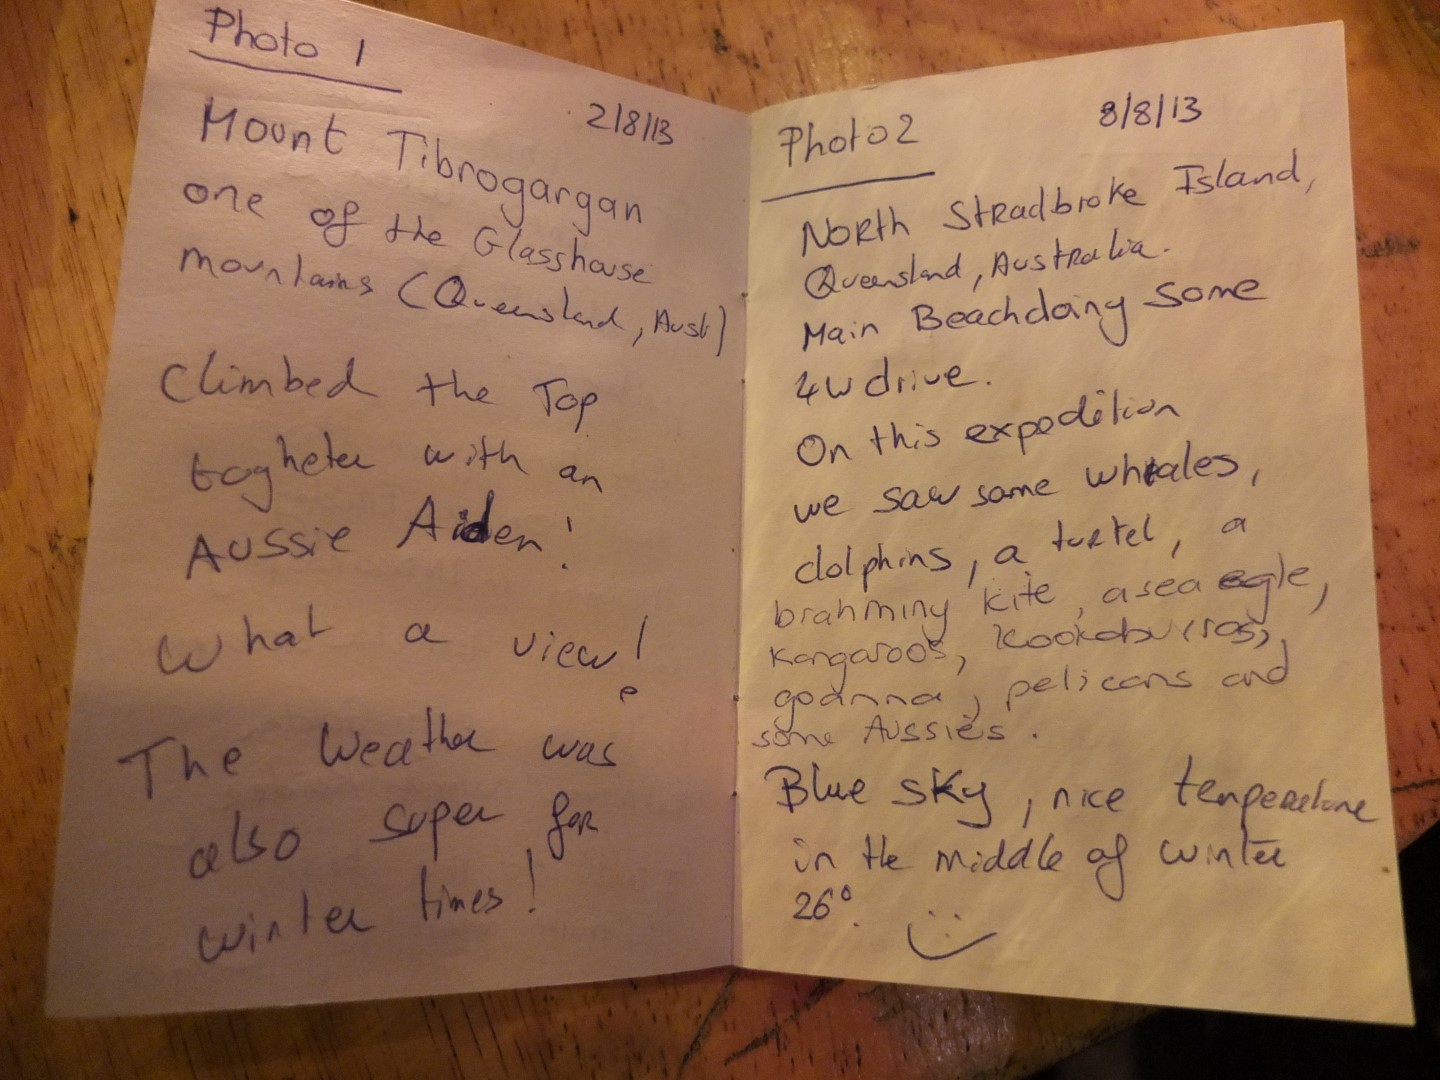 Photo 1
2/8/13
Mount Tibrogargan
one of the Glasshouse
mountains (Queensland, Aust)
Climbed the Top
togheter with an
Aussie Aiden!
What a view!
The Weather was
also super for
winter times!
Photo 2
8/8/13
North Stradbroke Island,
Queensland, Australia.
Main Beach doing some
4w drive.
On this expedition
we saw some whales,
dolphins, a turtel, a
brahminy kite, a sea egle,
kangaroos, kookaburras,
goanna, pelicans and
some Aussies.
Blue sky, nice temperature
in the middle of winter
26°.